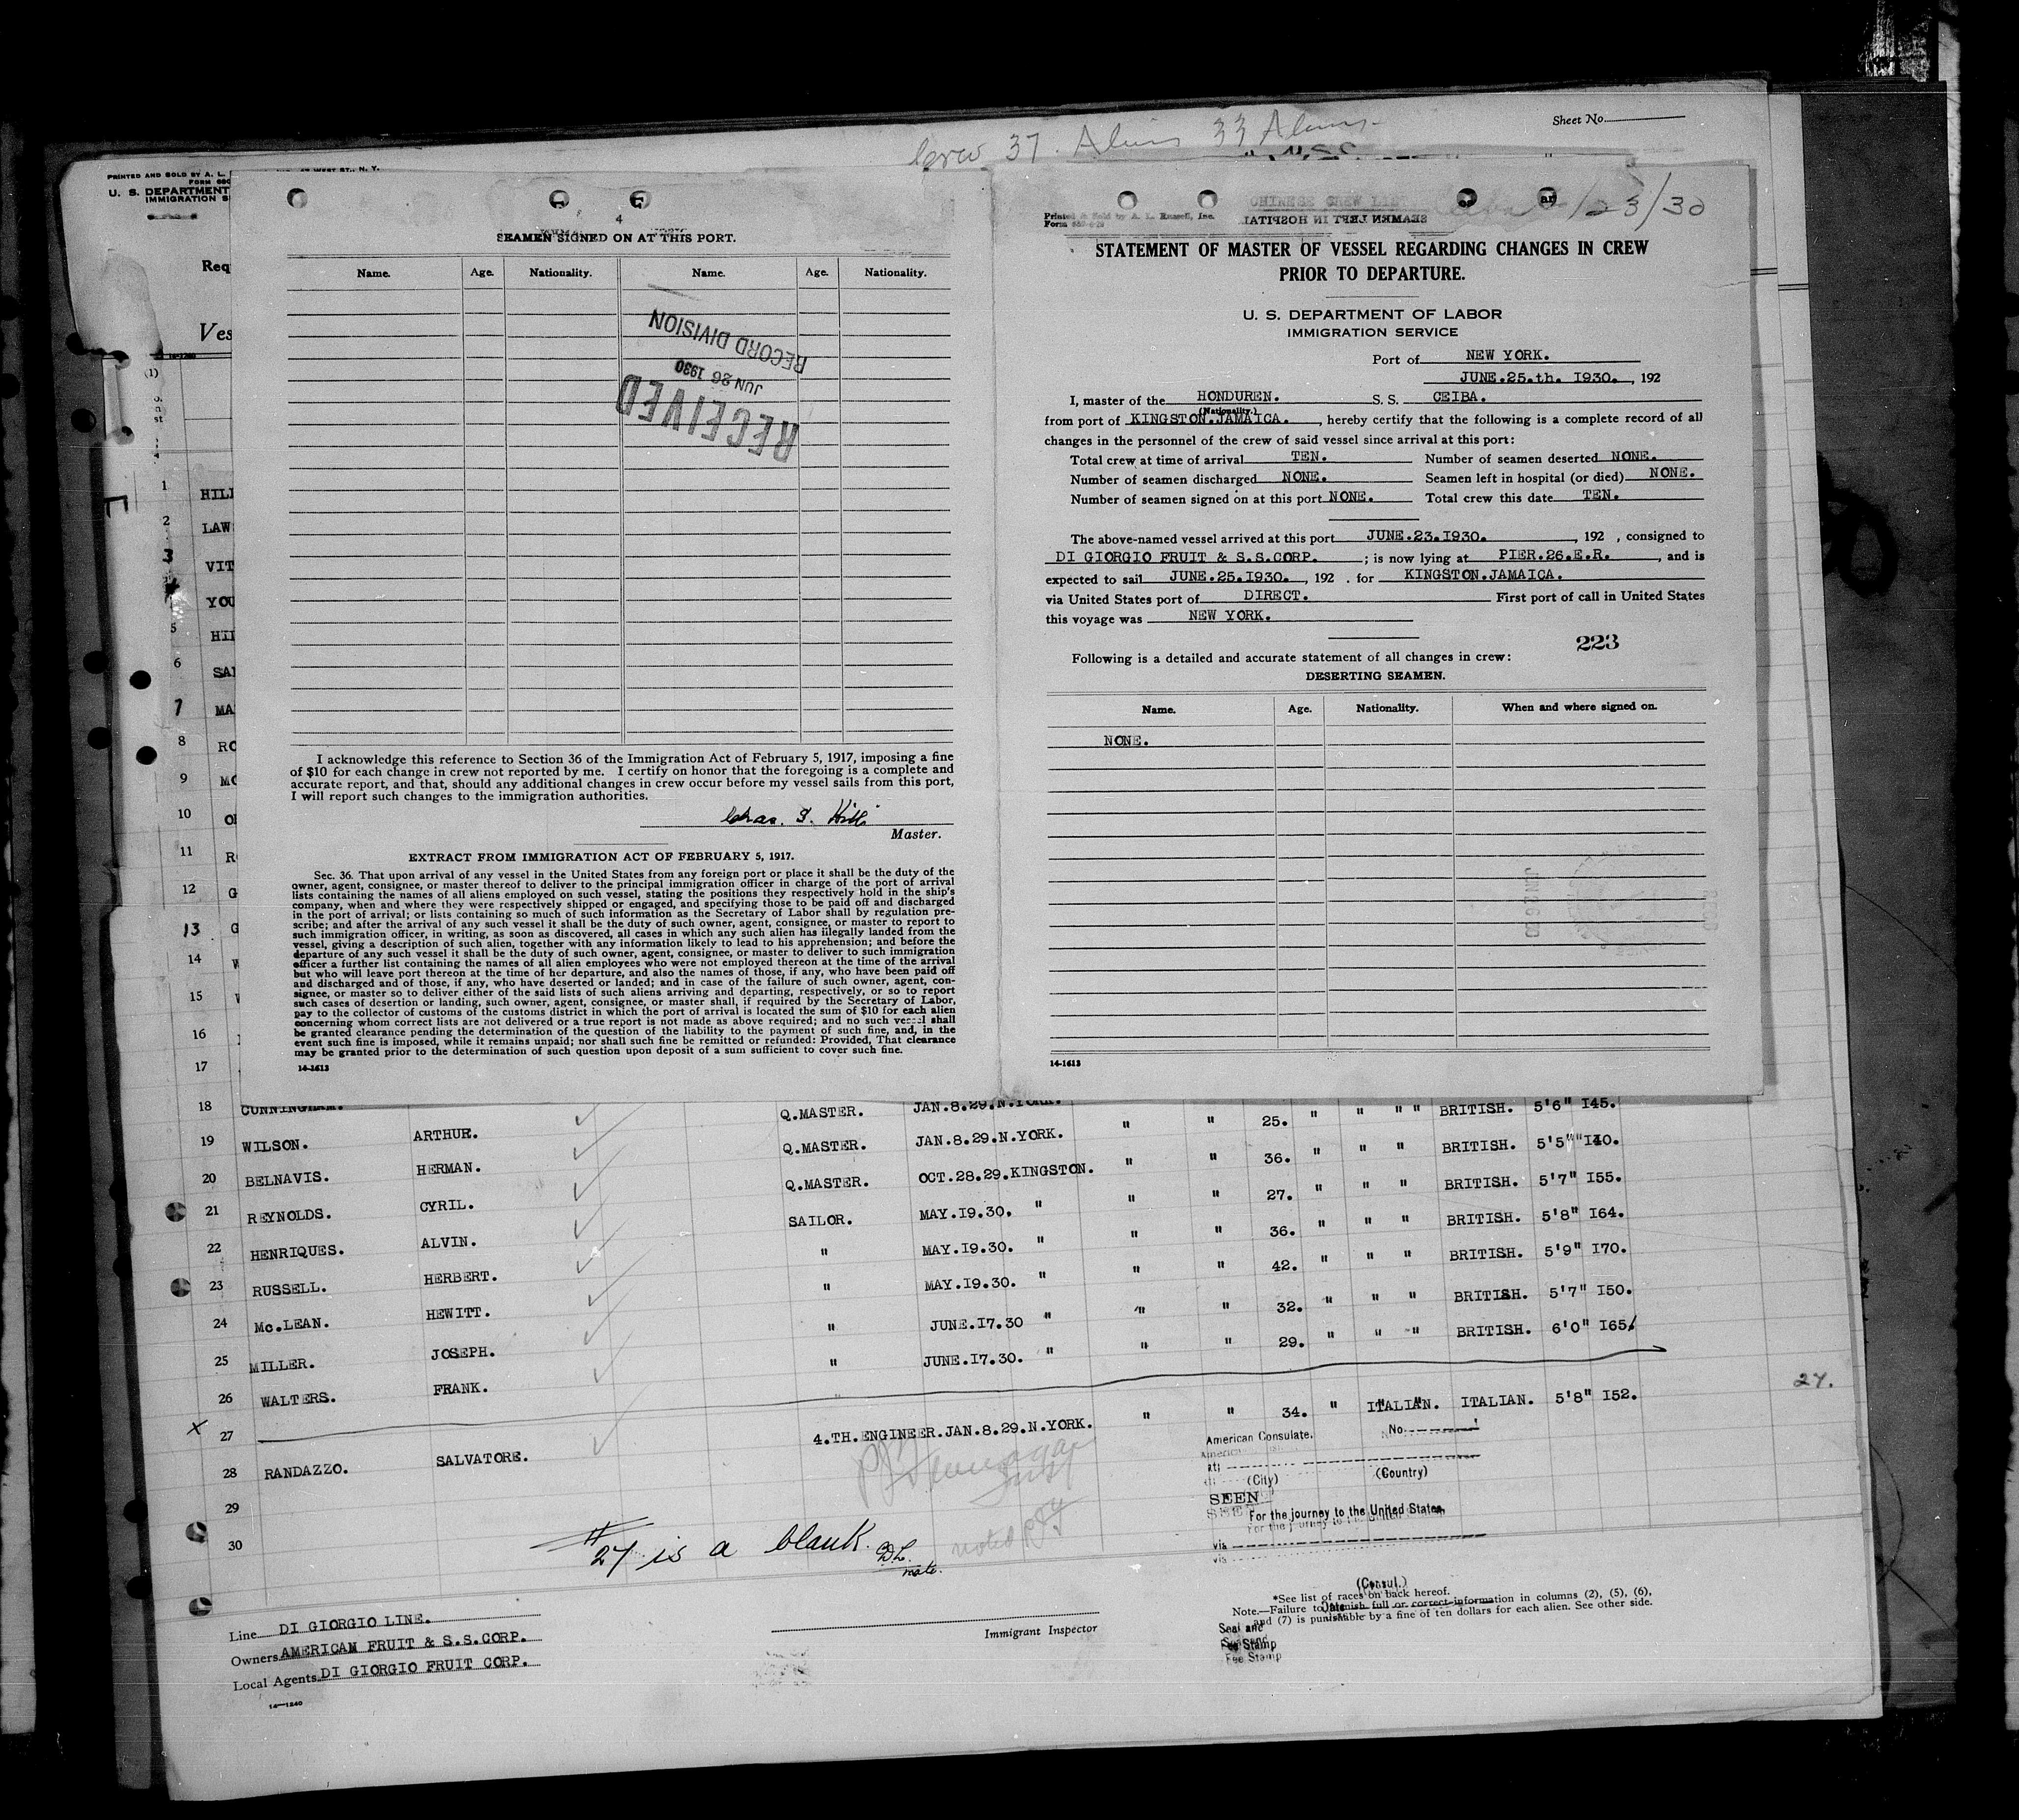 Sheet No.
Crew 37. Aliens 33 Aliens
PRINTED AND SOLD BY A. L.
U. S. DEPARTMENT
IMMIGRATION S
Req
Ves
(1)
1 HILL
2 LAW
3 VIT
YOU
5 HIL
6 SAL
7 MA
8 RO
9 MC
10
11 R
12 G
13 G
14 W
15
16
17
4
SEAMEN SIGNED ON AT THIS PORT.
Name. Age. Nationality. Name. Age. Nationality.
RECEIVED
JUN 26 1930
RECORD DIVISION
I acknowledge this reference to Section 36 of the Immigration Act of February 5, 1917, imposing a fine
of $10 for each change in crew not reported by me. I certify on honor that the foregoing is a complete and
accurate report, and that, should any additional changes in crew occur before my vessel sails from this port,
I will report such changes to the immigration authorities.
Chas. S. Hill
Master.
EXTRACT FROM IMMIGRATION ACT OF FEBRUARY 5, 1917.
Sec. 36. That upon arrival of any vessel in the United States from any foreign port or place it shall be the duty of the
owner, agent, consignee, or master thereof to deliver to the principal immigration officer in charge of the port of arrival
lists containing the names of all aliens employed on such vessel, stating the positions they respectively hold in the ship's
company, when and where they were respectively shipped or engaged, and specifying those to be paid off and discharged
in the port of arrival; or lists containing so much of such information as the Secretary of Labor shall by regulation pre-
scribe; and after the arrival of any such vessel it shall be the duty of such owner, agent, consignee, or master to report to
such immigration officer, in writing, as soon as discovered, all cases in which any such alien has illegally landed from the
vessel, giving a description of such alien, together with any information likely to lead to his apprehension; and before the
departure of any such vessel it shall be the duty of such owner, agent, consignee, or master to deliver to such immigration
officer a further list containing the names of all alien employees who were not employed thereon at the time of the arrival
but who will leave port thereon at the time of her departure, and also the names of those, if any, who have been paid off
and discharged and of those, if any, who have deserted or landed; and in case of the failure of such owner, agent, con-
signee, or master so to deliver either of the said lists of such aliens arriving and departing, respectively, or so to report
such cases of desertion or landing, such owner, agent, consignee, or master shall, if required by the Secretary of Labor,
pay to the collector of customs of the customs district in which the port of arrival is located the sum of $10 for each alien
concerning whom correct lists are not delivered or a true report is not made as above required; and no such vessel shall
be granted clearance pending the determination of the question of the liability to the payment of such fine, and, in the
event such fine is imposed, while it remains unpaid; nor shall such fine be remitted or refunded: Provided, That clearance
may be granted prior to the determination of such question upon deposit of a sum sufficient to cover such fine.
14-1613
Printed & Sold by A. L. Russell, Inc.
CHINESE CREW LIST
SEAMEN LEFT IN HOSPITAL
/23/30
STATEMENT OF MASTER OF VESSEL REGARDING CHANGES IN CREW
PRIOR TO DEPARTURE.
U. S. DEPARTMENT OF LABOR
IMMIGRATION SERVICE
Port of NEW YORK.
JUNE.25.th. I930., 192
I, master of the HONDUREN. S. S. CEIBA.
(Nationality.)
from port of KINGSTON.JAMAICA., hereby certify that the following is a complete record of all
changes in the personnel of the crew of said vessel since arrival at this port:
Total crew at time of arrival TEN. Number of seamen deserted NONE.
Number of seamen discharged NONE. Seamen left in hospital (or died) NONE.
Number of seamen signed on at this port NONE. Total crew this date TEN.
The above-named vessel arrived at this port JUNE.23.I930., 192 , consigned to
DI GIORGIO FRUIT & S.S.CORP. ; is now lying at PIER.26.E.R., and is
expected to sail JUNE.25.I930., 192 . for KINGSTON.JAMAICA.
via United States port of DIRECT. First port of call in United States
this voyage was NEW YORK.
223
Following is a detailed and accurate statement of all changes in crew:
DESERTING SEAMEN.
Name. Age. Nationality. When and where signed on.
NONE.
14-1613
18 CUNNINGHAM. ARTHUR. Q.MASTER. JAN.8.29.N.YORK. " " 25. " " " " BRITISH. 5'6" I45.
19 WILSON. HERMAN. Q.MASTER. JAN.8.29.N.YORK. " " 36. " " " BRITISH. 5'5" I40.
20 BELNAVIS. CYRIL. Q.MASTER. OCT.28.29.KINGSTON. " " 27. " " " BRITISH. 5'7" I55.
21 REYNOLDS. ALVIN. SAILOR. MAY.I9.30. " " " 36. " " " BRITISH. 5'8" I64.
22 HENRIQUES. HERBERT. " MAY.I9.30. " " " 42. " " " BRITISH. 5'9" I70.
23 RUSSELL. HEWITT. " MAY.I9.30. " " " 32. " " " BRITISH. 5'7" I50.
24 Mc.LEAN. JOSEPH. " JUNE.I7.30 " " " 29. " " " BRITISH. 6'0" I65.
25 MILLER. FRANK. " JUNE.I7.30. "
26 WALTERS.
x 27
28 RANDAZZO. SALVATORE. 4.TH.ENGINEER.JAN.8.29.N.YORK. " " 34. " ITALIAN. ITALIAN. 5'8" I52.
27.
29
30
# 27 is a blank. D.L. mate.
noted
American Consulate. No.
at
(City) (Country)
SEEN
For the journey to the United States
via
(Consul.)
Date
Seal and
Fee Stamp
*See list of races on back hereof.
Note.—Failure to furnish full or correct information in columns (2), (5), (6),
and (7) is punishable by a fine of ten dollars for each alien. See other side.
Immigrant Inspector
Line DI GIORGIO LINE.
Owners AMERICAN FRUIT & S.S.CORP.
Local Agents DI GIORGIO FRUIT CORP.
14—1240